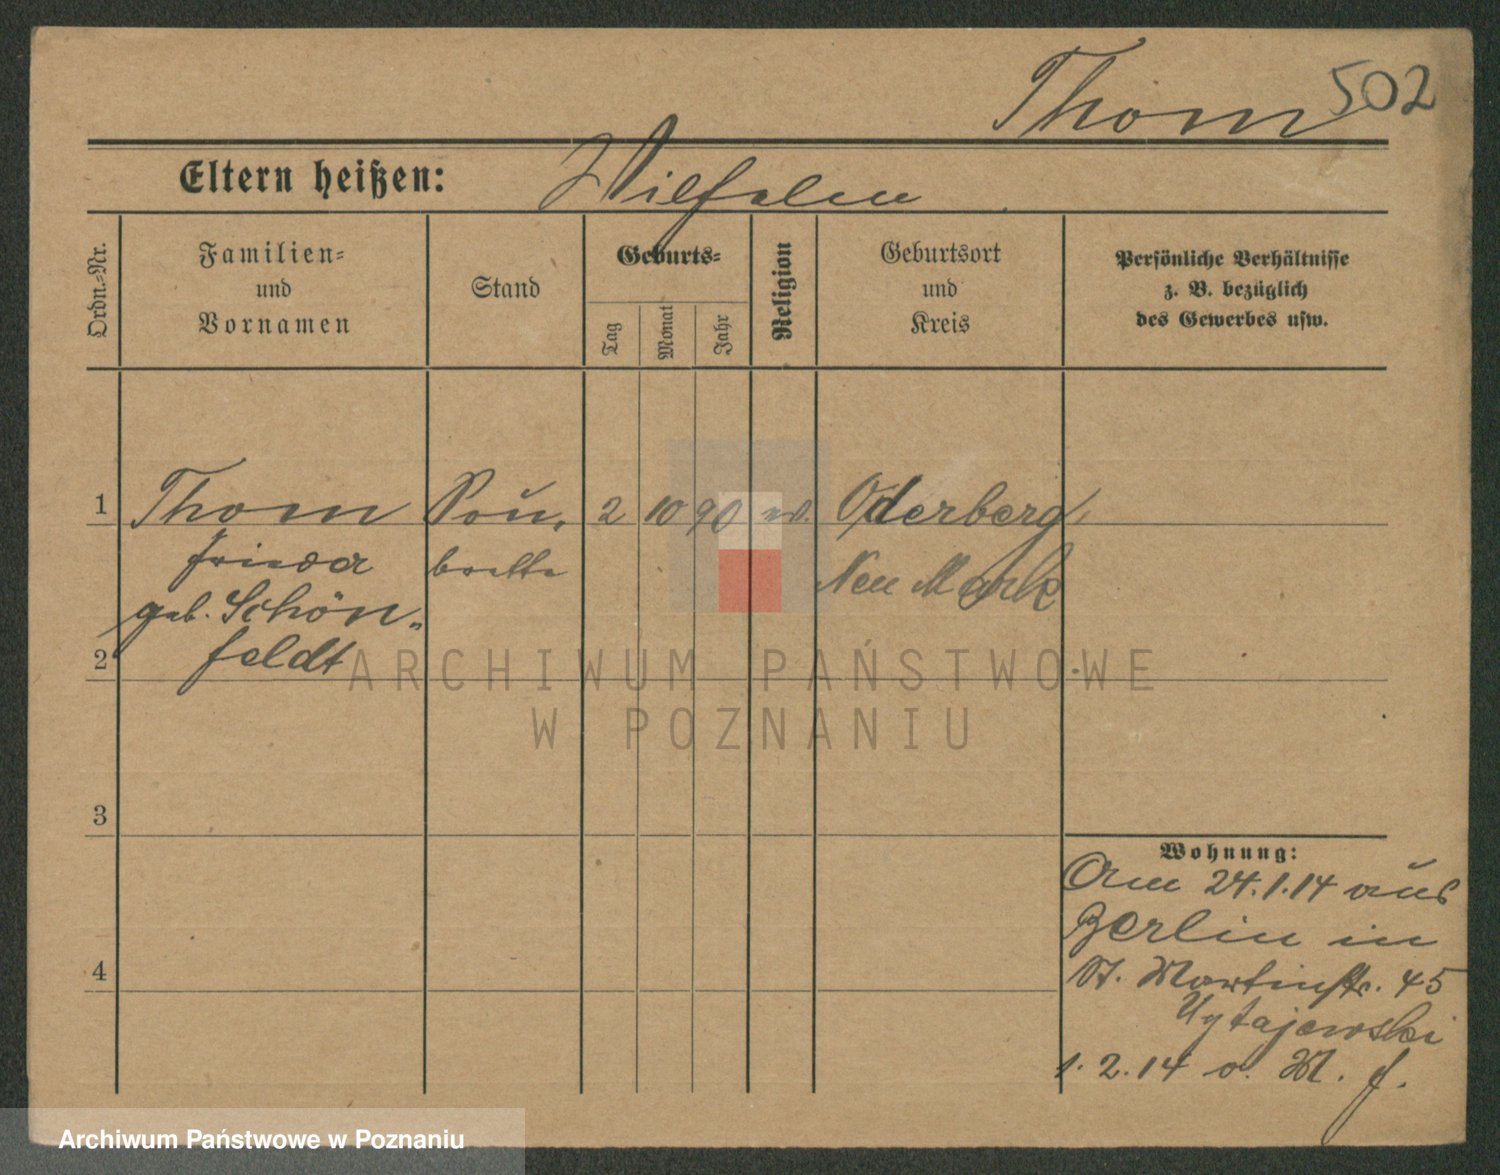 Thom 502
Eltern heißen: Wilhelm
Ordn.-Nr.
Familien-
und
Vornamen
Stand
Geburts-
Tag
Monat
Jahr
Religion
Geburtsort
und
Kreis
Persönliche Verhältnisse
z. B. bezüglich
des Gewerbes usw.
1 Thom Sou- 2 10 90 ev. Oderberg
Frieda brette Neu Mark
geb. Schön-
2 feldt
3
4
Wohnung:
Am 24.1.14 aus
Berlin in
St. Martinstr. 45
1.2.14 o. M. f.
ARCHIWUM PAŃSTWOWE
W POZNANIU
Archiwum Państwowe w Poznaniu